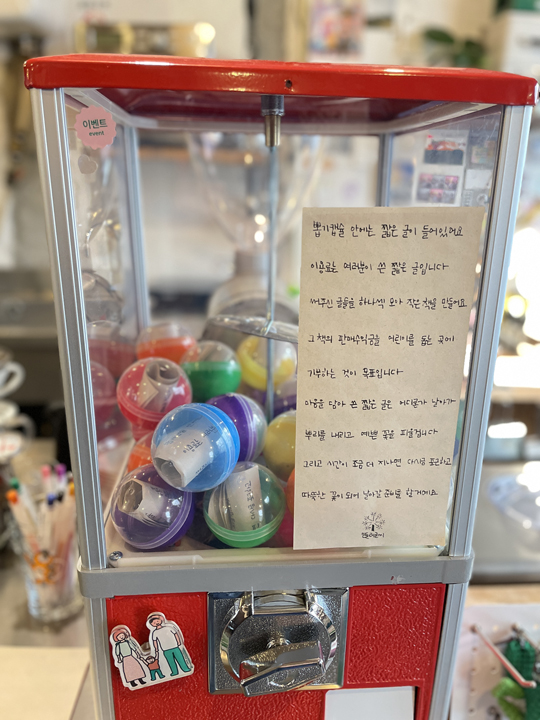 이벤트
event
뽑기캡슐 안에는 짧은 글이 들어있어요
이용료는 여러분이 쓴 짧은 글입니다
써주신 글들을 하나씩 모아 작은 책을 만들어요
그 책의 판매수익금을 어린이를 돕는 곳에
기부하는 것이 목표입니다
마음을 담아 쓴 짧은 글은 어디론가 날아가
뿌리를 내리고 예쁜 꽃을 피울겁니다
그리고 시간이 조금 더 지나면 다시금 포근하고
따뜻한 꽃이 되어 날아갈 준비를 할거예요